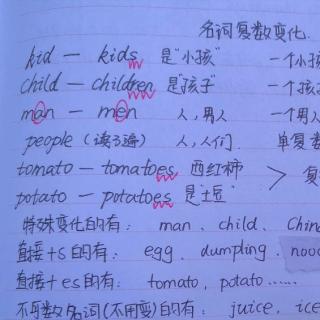 名词复数变化.
kid — kids 是"小孩" 一个小孩
child — children 是"孩子" 一个孩
man — men 人,男人 一个男
people (读3遍) 人,人们. 单复数
tomato — tomatoes 西红柿
potato — potatoes 是土豆 > 复
特殊变化的有: man、child、Chin
直接+s的有: egg、dumpling、nood
直接+es的有: tomato, potato……
不可数名词(不用变)的有: juice、ice